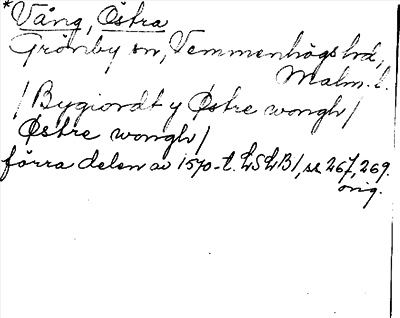 *Vång, Östra
Grönby sn, Vemmenhögs hd,
Malm. l.
/Bygiordt y Østre wongh/
Østre wongh/
förra delen av 1570-t. LSLB1, ss 267, 269.
orig.